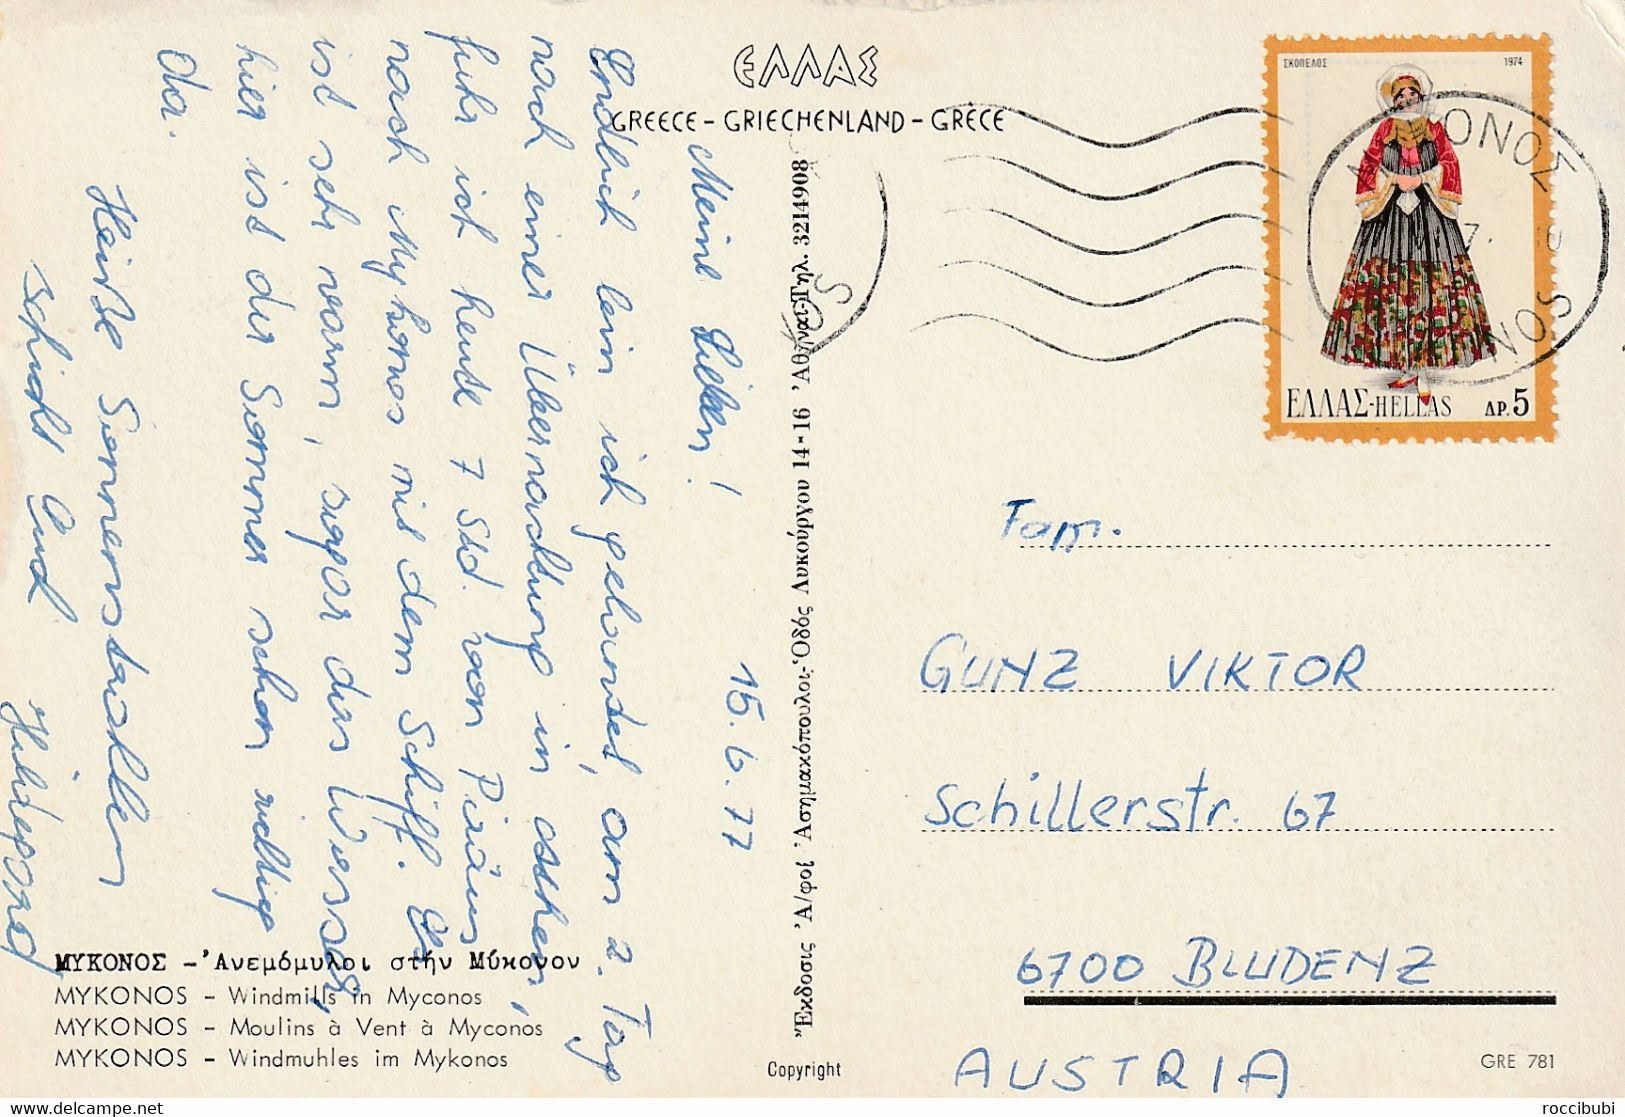 ΕΛΛΑΣ
GREECE - GRIECHENLAND - GRÈCE
15.6.77
Meine Lieben!
Endlich bin ich gelandet, am 2. Tag
nach einer Übernachtung in Athen,
fuhr ich heute 7 Std. von Piräus
nach Mykonos mit dem Schiff. Es
ist sehr warm, sogar das Wasser,
hier ist der Sommer schon richtig
da.
Heiße Sonnenstrahlen
schickt Euch
Hildegard
ΜΥΚΟΝΟΣ - 'Ανεμόμυλοι στήν Μύκονον
MYKONOS - Windmills in Myconos
MYKONOS - Moulins à Vent à Myconos
MYKONOS - Windmuhles im Mykonos
"Έκδοσις 'Α/φοί 'Ασημακόπουλοι, 'Οδός Λυκούργου 14-16 'Αθῆναι-Τηλ. 3214908
Copyright
ΣΚΟΠΕΛΟΣ 1974
ΕΛΛΑΣ-HELLAS ΔΡ. 5
Fam.
GUNZ VIKTOR
Schillerstr. 67
6700 BLUDENZ
AUSTRIA
GRE 781
roccibubi